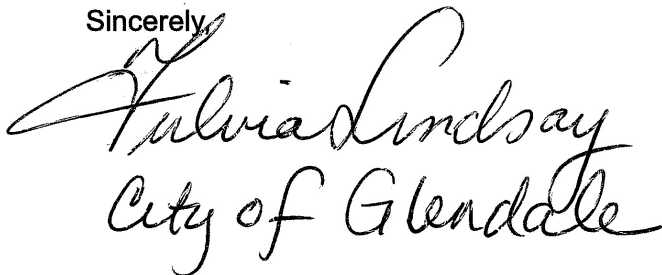 Sincerely,
Fulvia Lindsay
City of Glendale